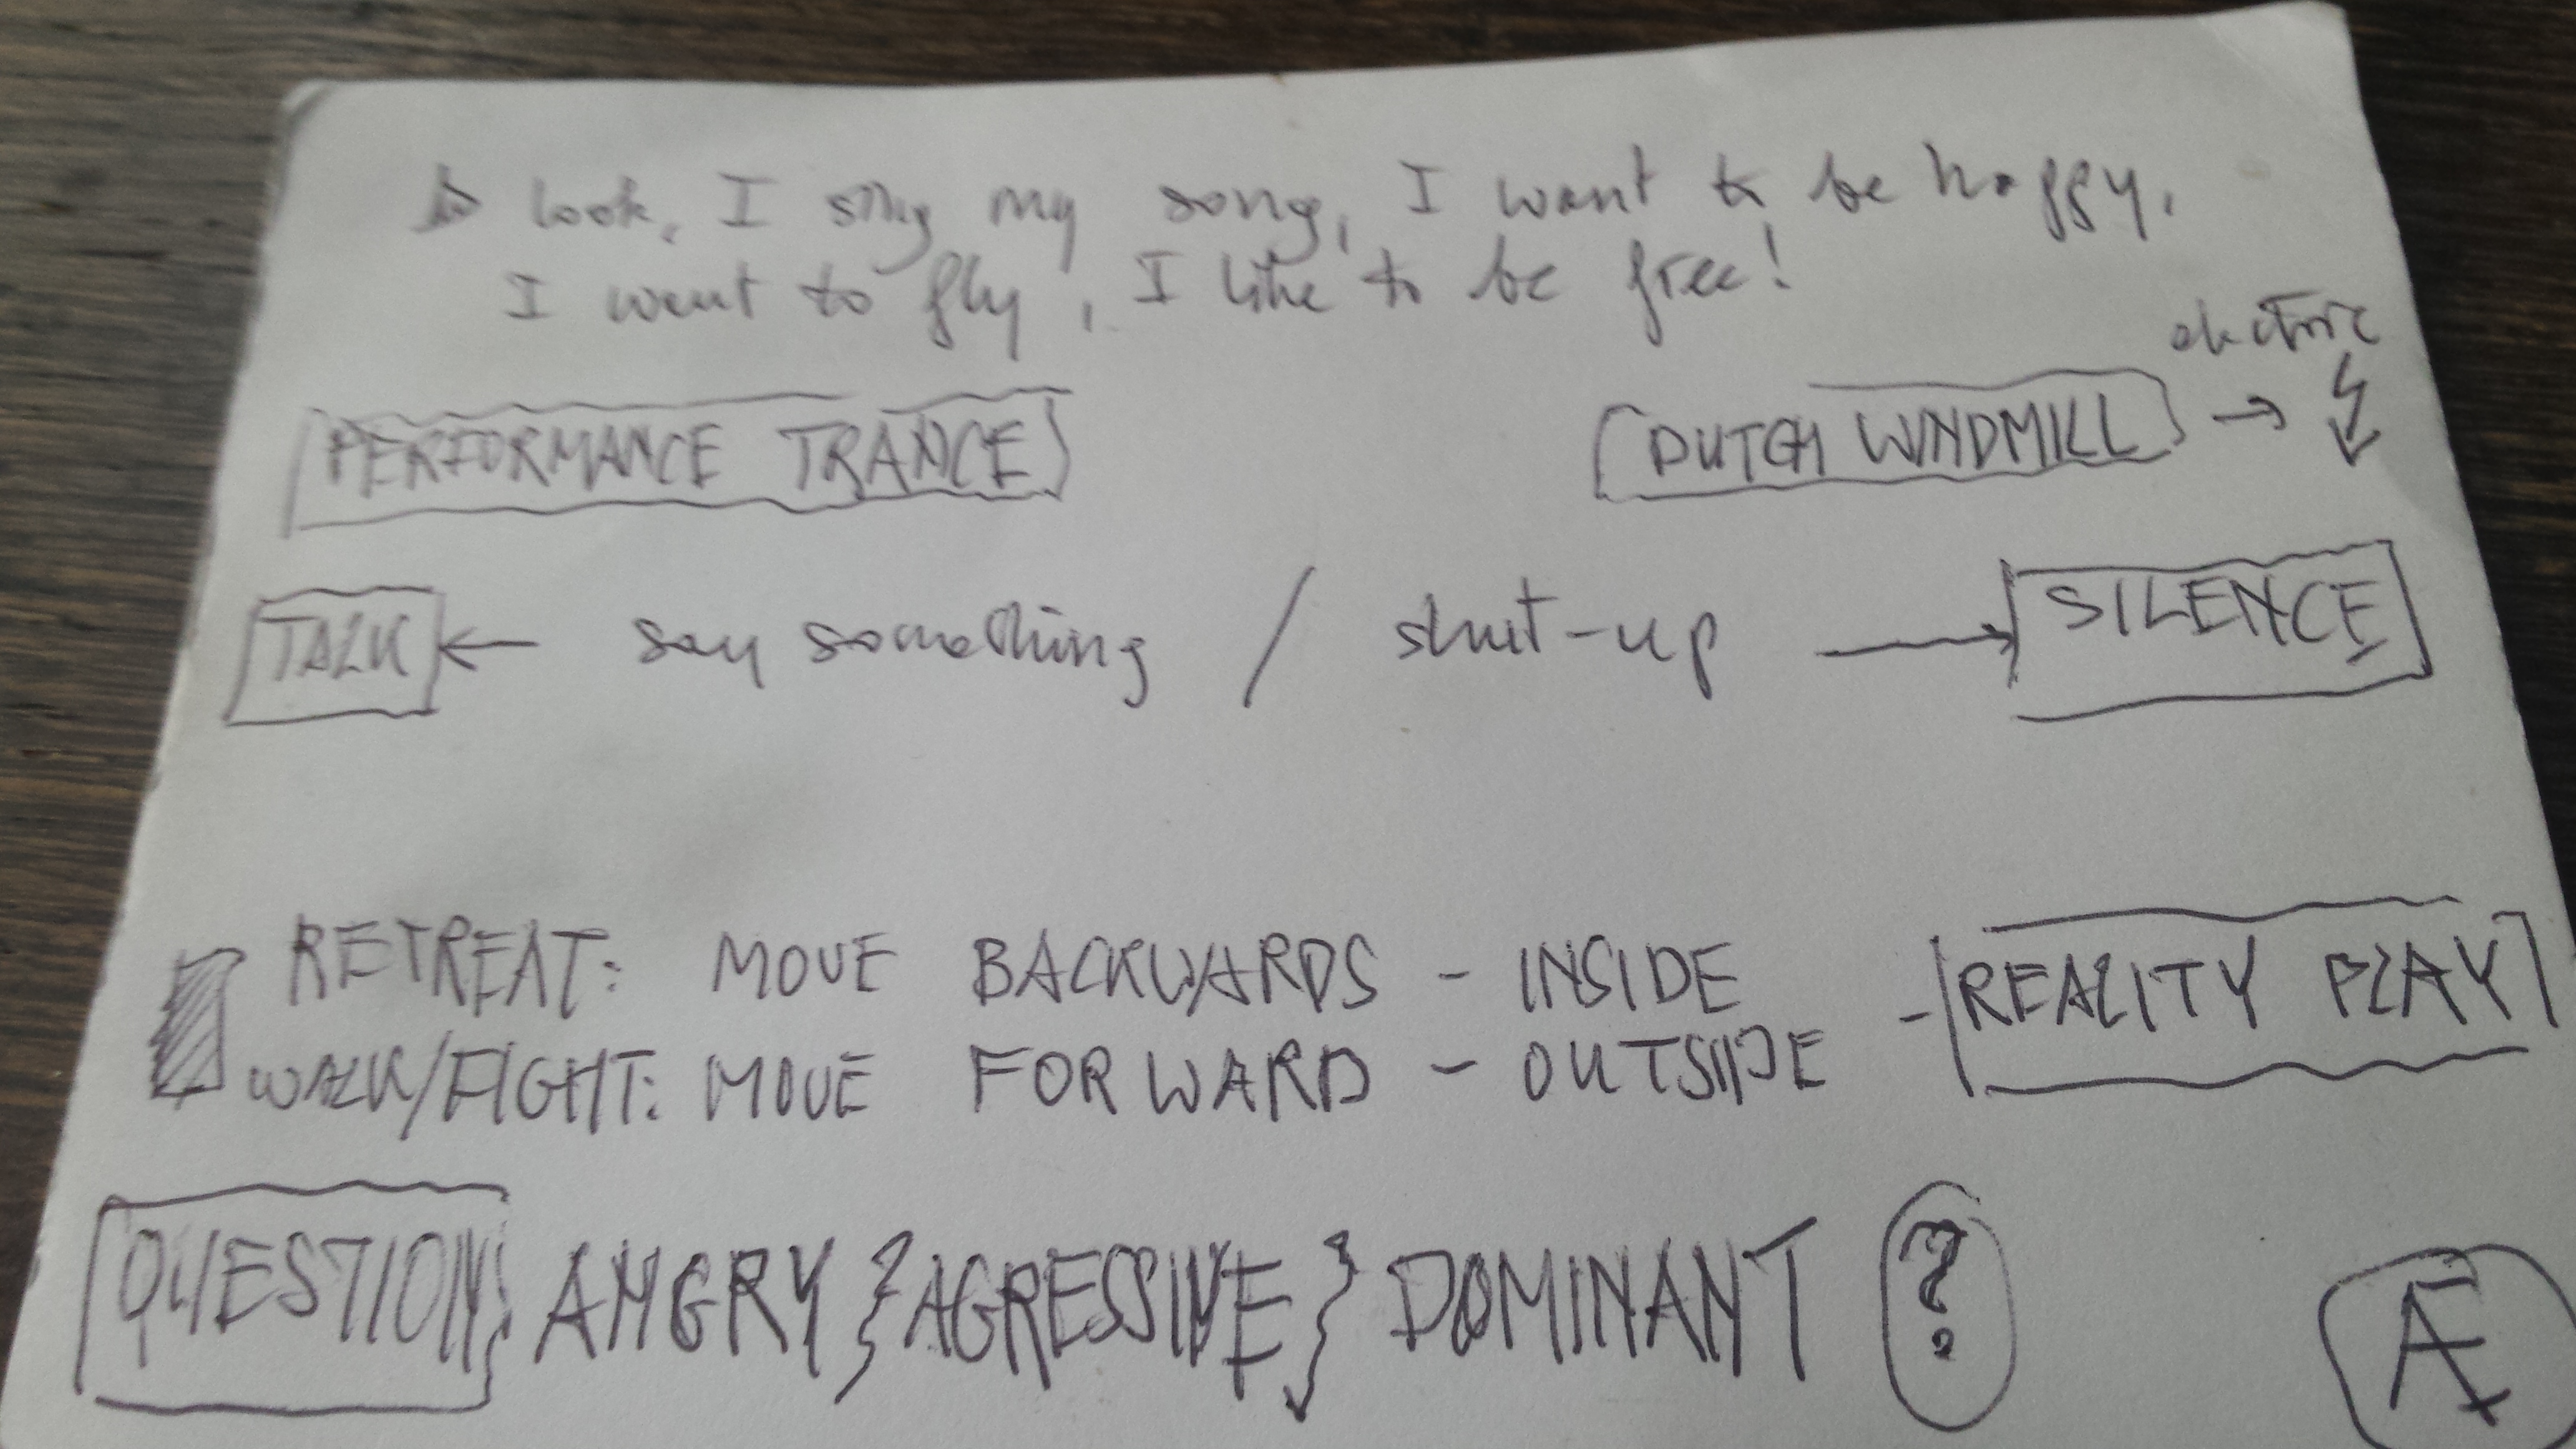 look, I sing my song, I want to be happy,
I want to fly, I like to be free!
electric
PERFORMANCE TRANCE DUTCH WINDMILL →
TALK ← say something / shut-up → SILENCE
RETREAT: MOVE BACKWARDS - INSIDE - REALITY PLAY
WALK/FIGHT: MOVE FORWARD - OUTSIDE
QUESTION ANGRY } AGRESSIVE } DOMINANT ?
Æ